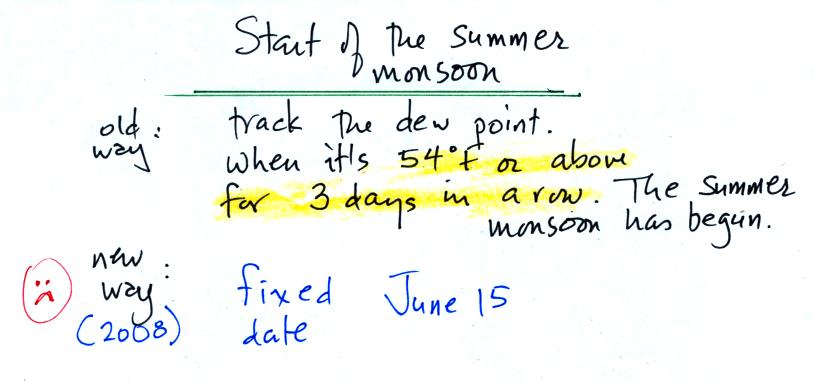 Start of the summer
monsoon
old way: track the dew point.
when it's 54°F or above
for 3 days in a row. The summer
monsoon has begun.
new way: (2008) fixed date June 15